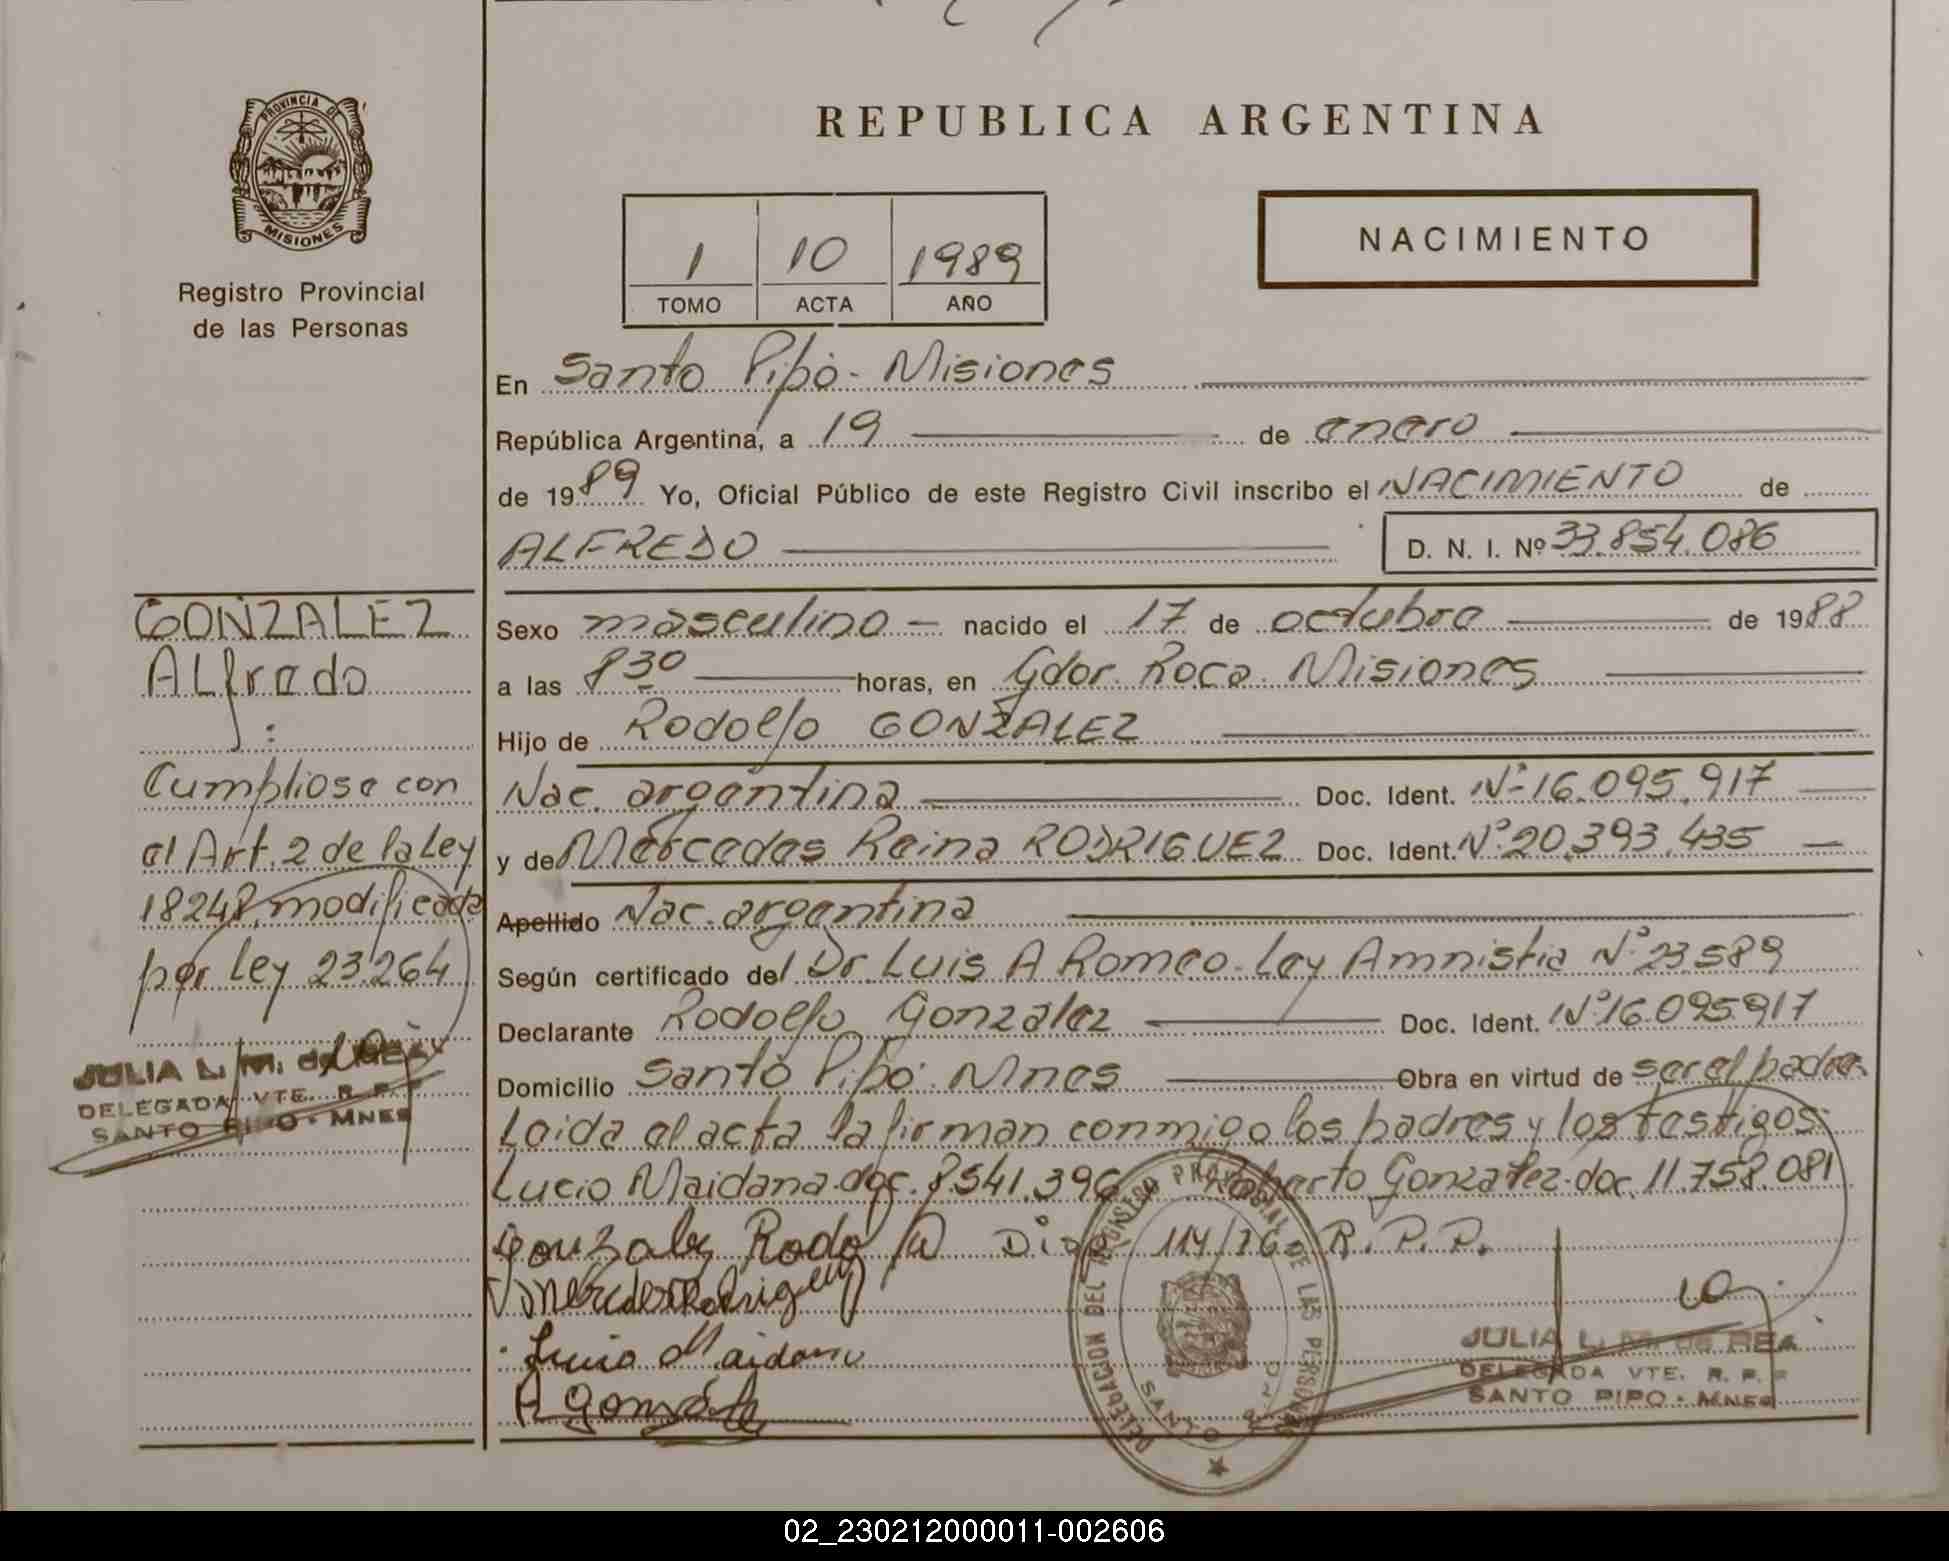 PROVINCIA DE
MISIONES
Registro Provincial
de las Personas
REPUBLICA ARGENTINA
1 10 1989
TOMO ACTA AÑO
NACIMIENTO
En Santo Pipó - Misiones
República Argentina, a 19 de enero
de 1989 Yo, Oficial Público de este Registro Civil inscribo el NACIMIENTO de
ALFREDO D. N. I. Nº 33.854.086
Sexo masculino - nacido el 17 de octubre de 1988
a las 8 30 horas, en Gdor. Roca. Misiones
Hijo de Rodolfo GONZALEZ
Nac. argentina Doc. Ident. Nº 16.095.917
y de Mercedes Reina RODRIGUEZ Doc. Ident. Nº 20.393.435
Apellido Nac. argentina
Según certificado del Dr Luis A Romeo - Ley Amnistia Nº 23.589
Declarante Rodolfo Gonzalez Doc. Ident. Nº 16.095.917
Domicilio Santo Pipó. Mnes Obra en virtud de ser el padre.
Leida el acta la firman conmigo los padres y los testigos:
Lucio Maidana. doc. 8.541.396 Roberto Gonzalez. doc. 11.758.081
Gonzalez Rodolfo Disp. 114/76 R. P. P.
Mercedes Rodriguez
Lucio Maidana
R Gonzalez
DELEGACION DEL REGISTRO PROVINCIAL DE LAS PERSONAS
SANTO PIPO
JULIA L. M. de REA
DELEGADA VTE. R. P. P
SANTO PIPO - MNES
GONZALEZ
Alfredo
:
Cumpliose con
el Art. 2 de la Ley
18248, modificada
por Ley 23.264
JULIA L. M. de REA
DELEGADA VTE. R. P. P
SANTO PIPO - MNES
02_230212000011-002606